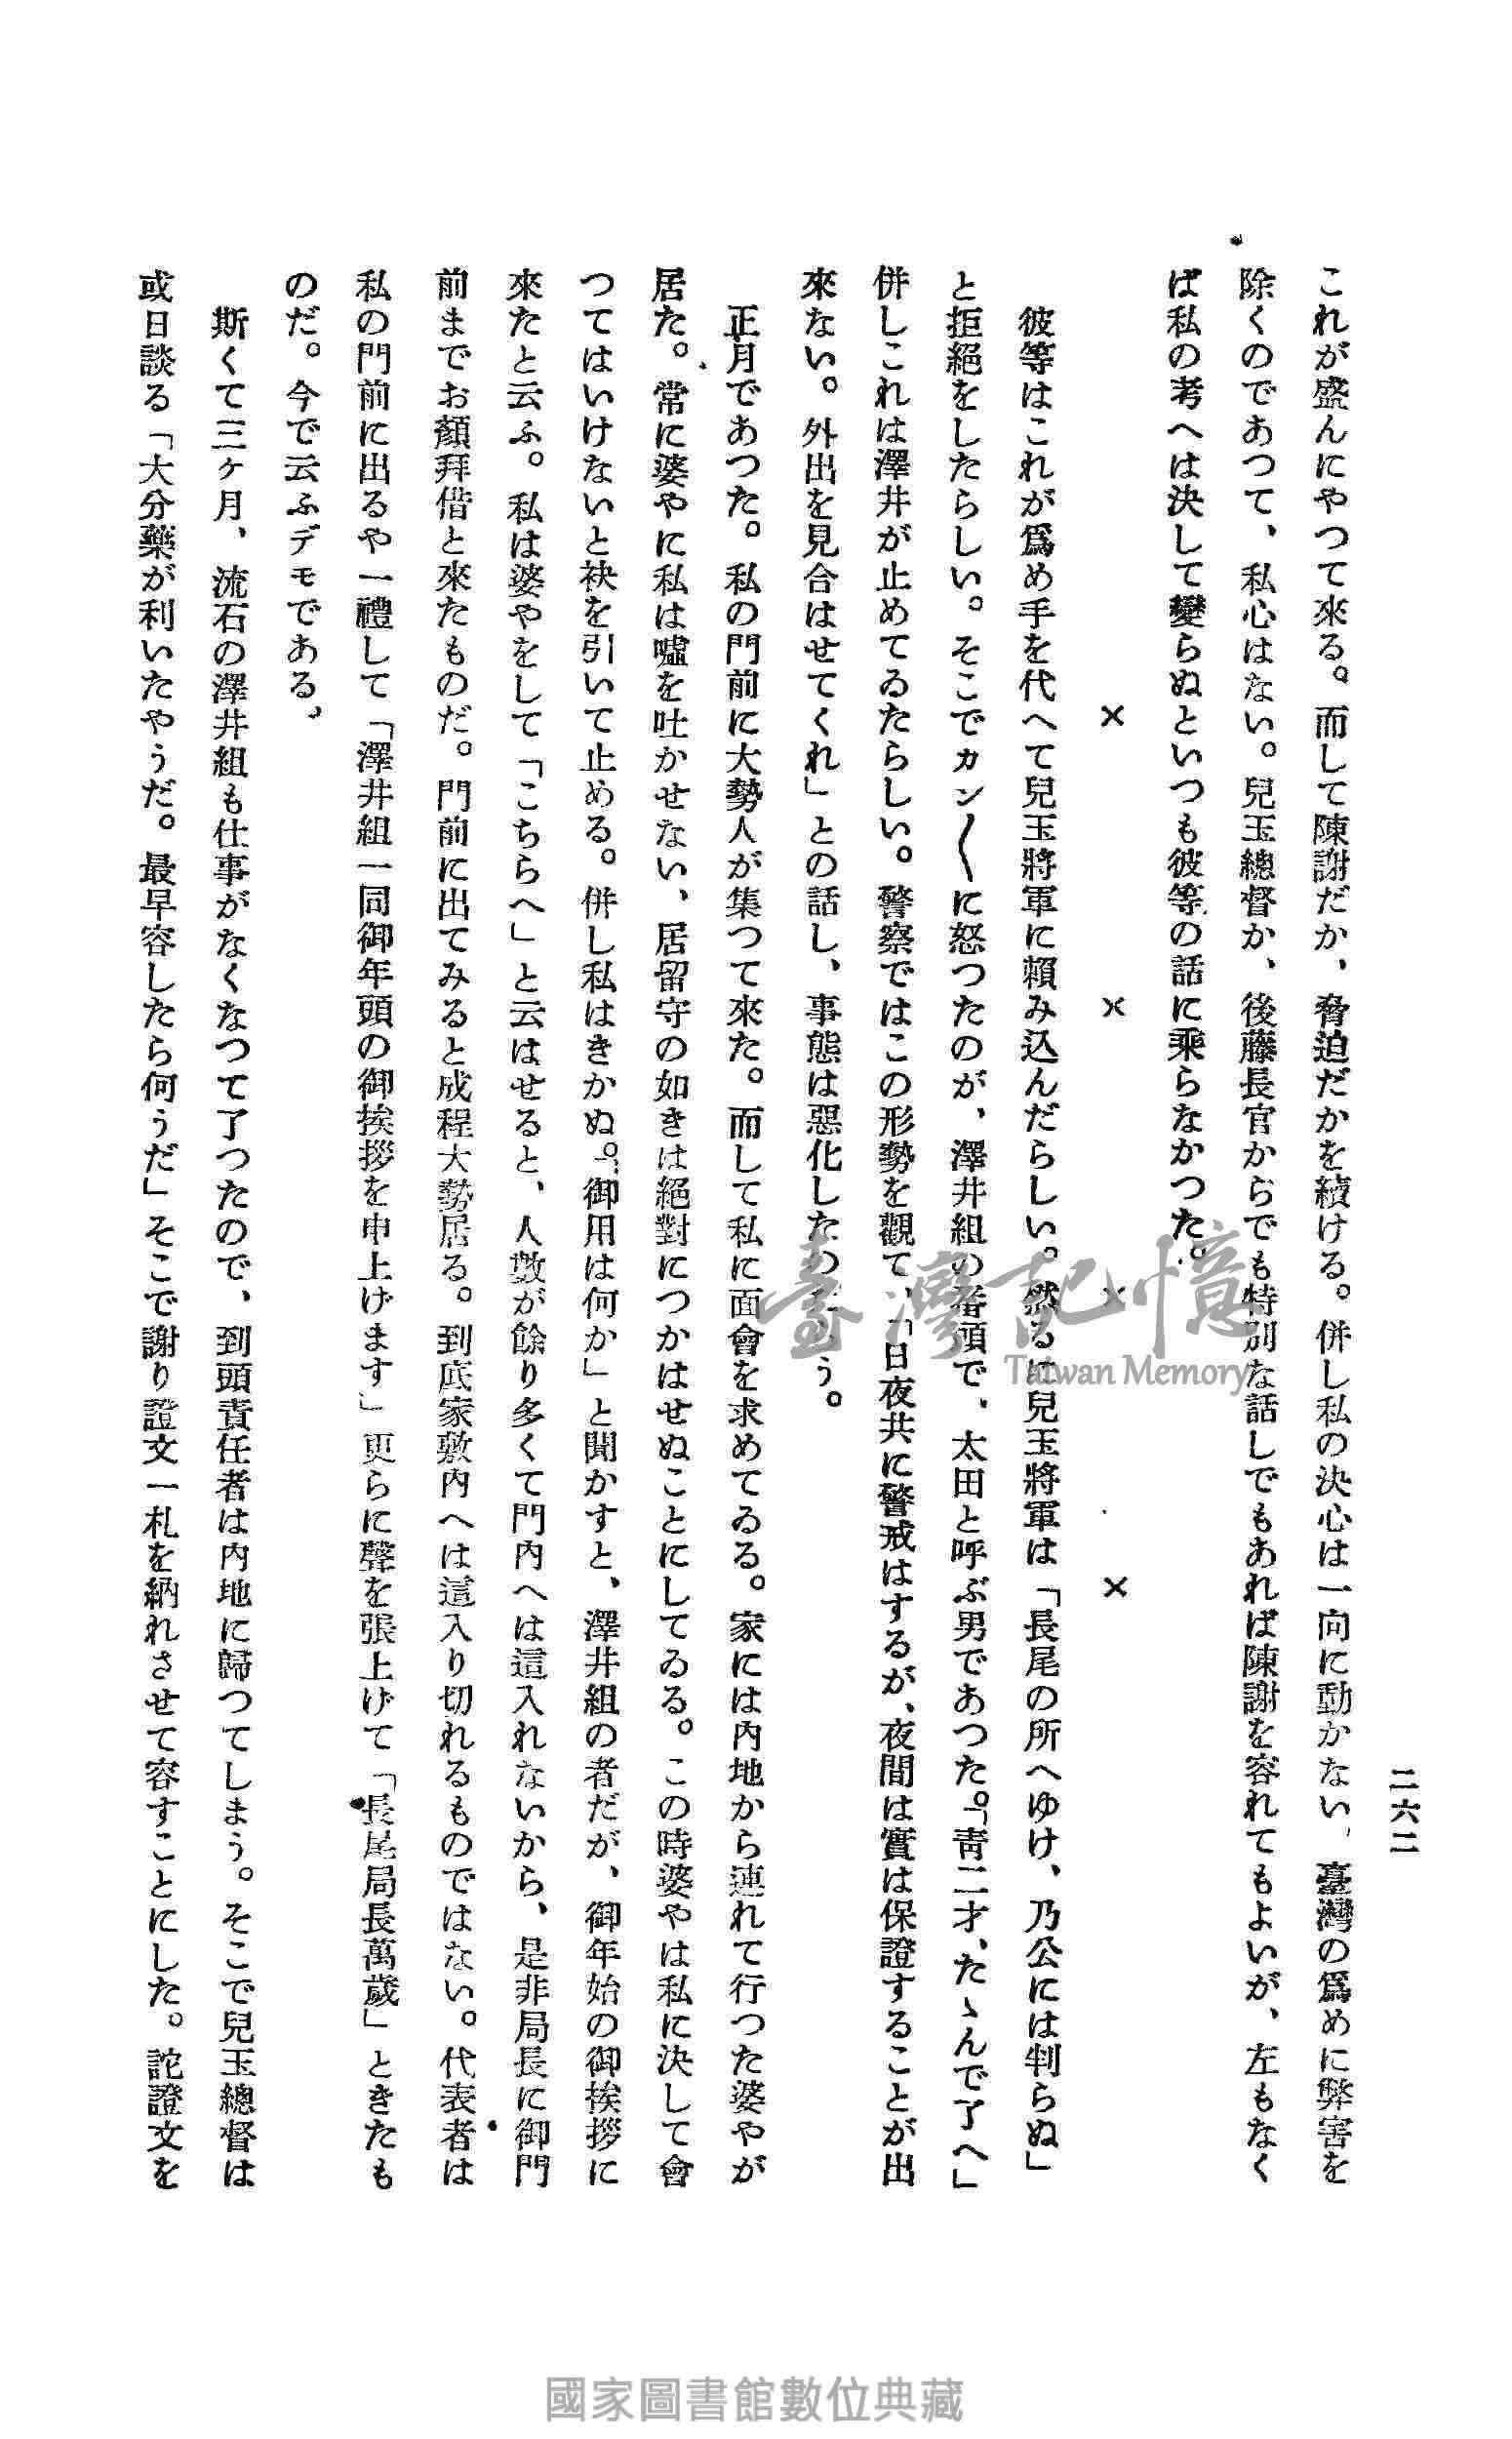 二六二
これが盛んにやつて來る。而して陳謝だか、脅迫だかを續ける。併し私の決心は一向に動かない、臺灣の爲めに弊害を
除くのであつて、私心はない。兒玉總督か、後藤長官からでも特別な話しでもあれば陳謝を容れてもよいが、左もなく
ば私の考へは決して變らぬといつも彼等の話に乘らなかつた。
× × × ×
彼等はこれが爲め手を代へて兒玉將軍に賴み込んだらしい。然るに兒玉將軍は「長尾の所へゆけ、乃公には判らぬ」
と拒絕をしたらしい。そこでカン〱に怒つたのが、澤井組の番頭で、太田と呼ぶ男であつた。「靑二才、たゝんで了へ」
併しこれは澤井が止めてゐたらしい。警察ではこの形勢を觀て、「日夜共に警戒はするが、夜間は實は保證することが出
來ない。外出を見合はせてくれ」との話し、事態は惡化したのだらう。
正月であつた。私の門前に大勢人が集つて來た。而して私に面會を求めてゐる。家には內地から連れて行つた婆やが
居た。常に婆やに私は噓を吐かせない、居留守の如きは絕對につかはせぬことにしてゐる。この時婆やは私に決して會
つてはいけないと袂を引いて止める。併し私はきかぬ。「御用は何か」と聞かすと、澤井組の者だが、御年始の御挨拶に
來たと云ふ。私は婆やをして「こちらへ」と云はせると、人數が餘り多くて門內へは這入れないから、是非局長に御門
前までお顏拜借と來たものだ。門前に出てみると成程大勢居る。到底家敷內へは這入り切れるものではない。代表者は
私の門前に出るや一禮して「澤井組一同御年頭の御挨拶を申上げます」更らに聲を張上げて「長尾局長萬歲」ときたも
のだ。今で云ふデモである、
斯くて三ケ月、流石の澤井組も仕事がなくなつて了つたので、到頭責任者は內地に歸つてしまう。そこで兒玉總督は
或日談る「大分藥が利いたやうだ。最早容したら何うだ」そこで謝り證文一札を納れさせて容すことにした。詫證文を
臺灣記憶
Taiwan Memory
國家圖書館數位典藏